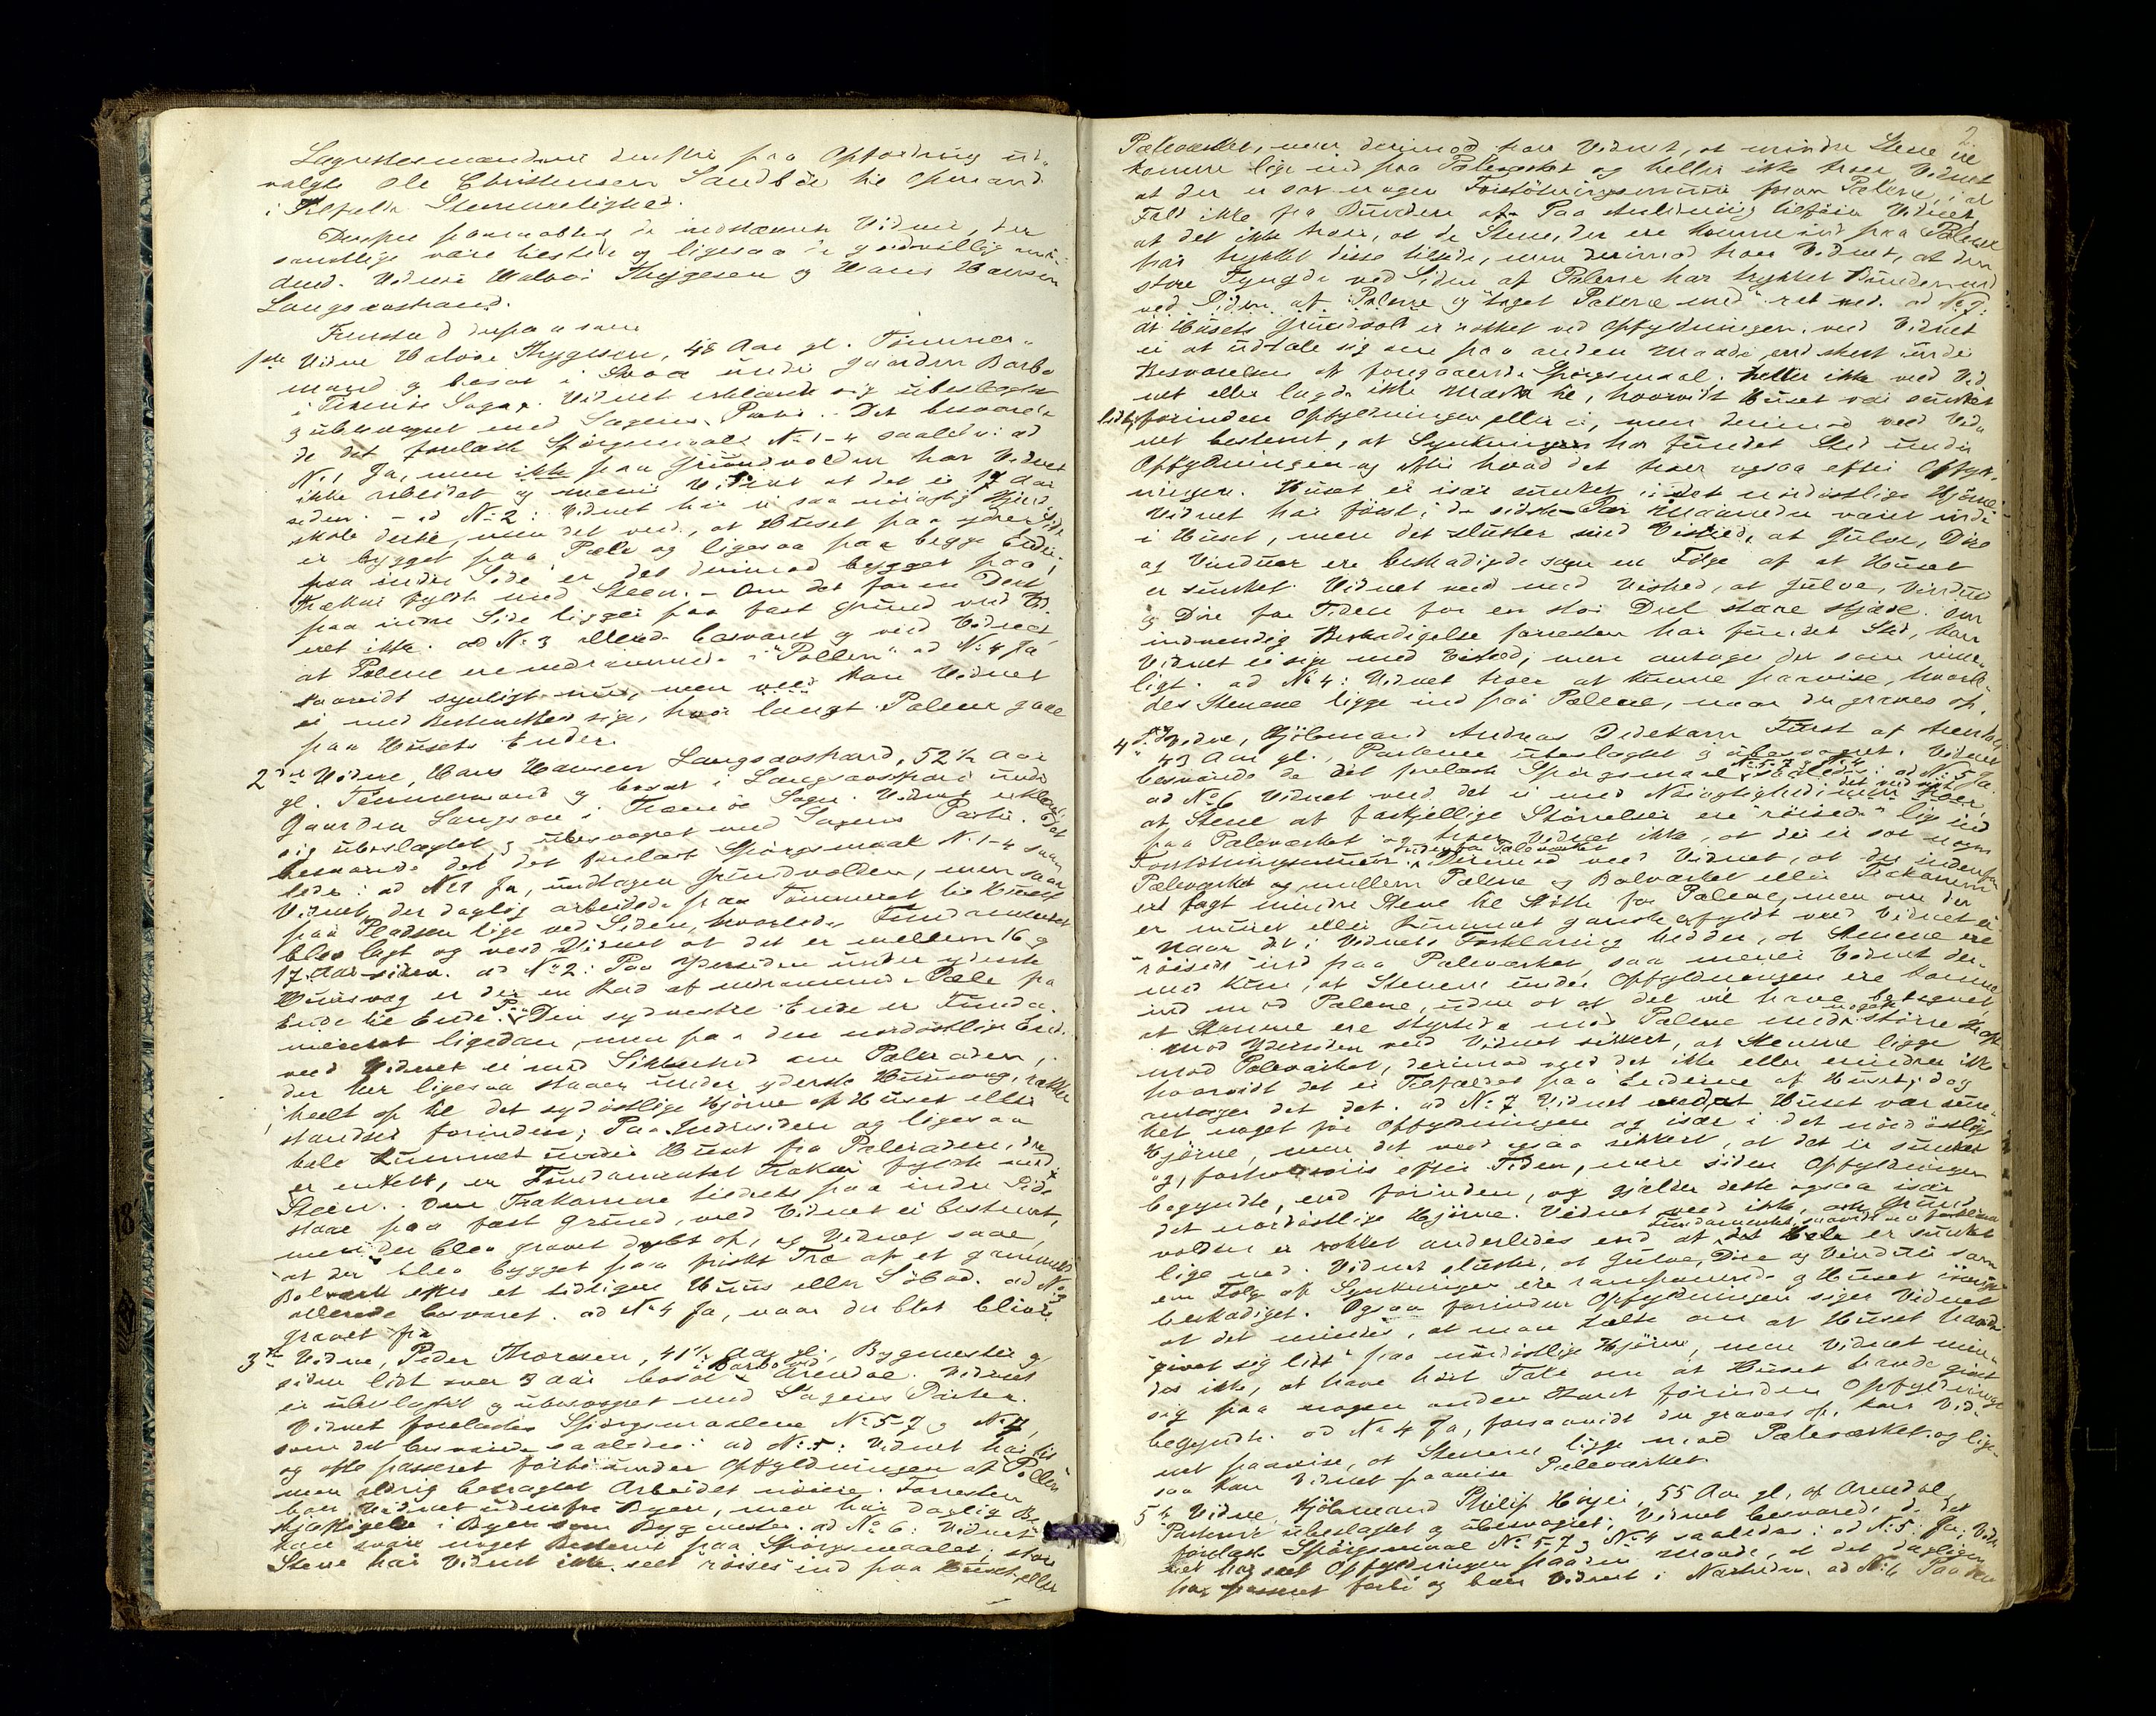 Lagrettesmændene derefter paa Opfordring ud-
valgte Ole Christensen Sandböe til Opmand
i Tilfælde Stemmelighed.
Derpaa paaraabtes de indstævnte Vidner, der
samtlige vare tilstede og ligesaa de godvillig mö-
dend. Vidner Halvor Thygesen og Hans Hansen
Langsævstrand.
Fremstod derpaa som
1ste Vidne Halvor Thygesen, 48 Aar gl. Tömmer-
mand og bosat i under Gaarden Barbo
i Tromöe Sogn. Vidnet erklærede sig ubeslægtet
og ubesvogret med Sagens Parter. Det besvarede
de det forelæste Spörgsmaal No 1-4 saaledes: ad
No 1 Ja, men ikke paa Grundvolden har Vidnet
ikke arbeidet og mener Vidnet at det er 17 Aar
siden. - ad No 2: Vidnet har ei saa nöiagtig Kjend-
skab dertil, men det veed, at Huset paa ydre Side
er bygget paa Pæle og ligesaa paa begge Ender;
paa indre Side er det derimod bygget paa
Trækar fyldt med Steen. - Om det for en Deel
paa indre Side ligger paa fast Grund ved Vid-
net ikke. ad No 3 allerede besvaret og veed Vidnet,
at Pælene ere nedrammede i "Pollen" ad No 4 Ja
saavidt synligt nu, men veed kan Vidnet
ei med Bestemthed sige, hvor langt Pælene gaae
paa Husets Ender.
2det Vidne, Hans Hansen Langsævstrand, 52 1/2 Aar
gl. Tömmermand og bosat i Langsævstrand under
Gaarden Langsæv i Tromöe Sogn. Vidnet erklærede
sig ubeslægtet og ubesvogret med Sagens Parter. Det
besvarede det det forelæst Spörgsmaal No 1-4 saa-
ledes: ad No 1 Ja, undtagen Grundvolden, men saae
Vidnet, der daglig arbeidede paa Tömmeret til Huset
paa Pladsen lige ved Siden, hvorledes Fundamentet
blev lagt og veed Vidnet at det er mellem 16 og
17 Aar siden. ad No 2: Paa Ydersiden under yderste
Huusvæg er der en Rad af nedrammede Pæle fra
Ende til Ende. Paa Den sydvestre Ende er Funda-
mentet ligedan, men paa den nordöstlige Ende
veed Vidnet ei med Sikkerhed om Pælraden,
der her ligesaa staaer under yderste Huusvæg, rækker
heelt op til det sydöstlige Hjörne af Huset eller
standser forinden; Paa Indresiden og ligesaa
hele Rummet under Huset fra Pæleraden, der
er enkelt, er Fundamentet Trækar fyldt med
Steen. Om Trækarene tildeels paa indre Side
staae paa fast Grund, veed Vidnet ei bestemt,
men der blev gravet dybt op, og Vidnet saae,
at der blev bygget paa friskt Træ af et gammelt
Bolværk efter et tidligere Huus eller Söbod. ad No 3
allerede besvaret. ad No 4 Ja, naar der blot bliver
gravet fra
3die Vidne, Peder Thorsen, 41 1/2 Aar gl., Bygmester og
siden lidt over 3 Aar bosat i Barbo ved Arendal. Vidnet
er ubeslægtet og ubesvogret med Sagens Parter.
Vidnet forelæstes Spörgsmaalene No 5-7 og No 4,
som det besvarede saaledes: ad No 5: Vidnet har tit
og ofte passeret forbi under Opfyldningen af Pollen
men aldrig betragtet Arbeidet nöiere. Forresten
boer Vidnet udenfor Byen, men har daglig Be-
skjæftigelse i Byen som Bygmester. ad No 6: Vidnet
kan svare noget Bestemt paa Spörgsmaalet; store
Stene har Vidnet ikke seet "röises" ind paa Huset, eller
2.
Pæleværket, men derimod troer Vidnet, at mindre Stene ere
komne lige ind paa Pæleværket og heller ikke troer Vidnet
at der er sat nogen Forstötningsmuur foran Pælene, i al
Fald ikke fra Bunden af. Paa Anledning tilföier Vidnet,
at det ikke troer, at de Stene, der ere komne ind paa Pælene
har trykket disse tilside, men derimod troer Vidnet, at den
store Tyngde ved Siden af Pælene har trykket Bunden ned
ved Siden af Pælene og "taget Pælene med" ret ned. ad No 7:
at Husets Grundvold er rokket ved Opfyldningen, veed Vidnet
ei at udtale sig om paa anden Maade, end skeet under
Besvarelsen af foregaaende Spörgsmaal. Heller ikke ved Vid-
net eller lagde ikke Mærke til, hvorvidt Huset var sunket
lidt forinden Opfyldningen eller ei, men derimod veed Vid-
net bestemt, at Synkningen har fundet Sted under
Opfyldningen og efter hvad det troer ogsaa efter Opfyld-
ningen. Huset er især sunket i det nordöstlige Hjörne.
Vidnet har först i de sidste Par Maaneder været inde
i Huset, men det slutter med Vished, at Gulve, Döre
og Vinduer ere beskadigede som en Fölge af at Huset
er sunket. Vidnet veed med Vished, at Gulve, Vinduer
og Döre for Tiden for en stor Deel staae skjæve. Om
indvendig Beskadigelse forresten har fundet Sted, kan
Vidnet ei sige med Vished, men antager det som rime-
ligt. ad No 4: Vidnet troer at kunne paavise, hvorle-
des Stenene ligge ind paa Pælene, naar der graves op.
4de Vidne, Kjöbmand Andreas Diderksen Fürst af Arendal
43 Aar gl., Parterne ubeslægtet og ubesvogret. Vidnet
besvarede de det forelæste Spörgsmaal No 5-7 og 4 saaledes: ad No 5 Ja.
ad No 6 Vidnet veed det ei med Nöiagtighed, men det veed vist
at Stene af forskjellige Störrelser ere "röisede" lige ind
paa Pæleværket og troer Vidnet ikke, at der er sat nogen
Forstötningsmuur udenfor Pæleværket. Derimod veed Vidnet, at der indenfor
Pæleværket og mellem Pælene og Bolværket eller Trækarrene
ere lagt mindre Stene til Stötte for Pælene, men om der
er muret eller Rummet ganske opfyldt veed Vidnet ei.
Naar det i Vidnets Forklaring hedder, at Stenene ere
"röisede" ind paa Pæleværket, saa mener Vidnet der-
med kun, at Stenene under Opfyldningen ere komne
ind mod Pælene, uden at det vil have betegnet,
at Stenene ere styrtede mod Pælene med noget större Kraft
Mod Ydersiden veed Vidnet sikkert, at Stenene ligge
mod Pæleværket, derimod veed det ikke eller erindrer ikke
hvorvidt det er Tilfældet paa Enderne af Huset; dog
antager det det. ad No 7 Vidnet veed at Huset var sun-
ket noget för Opfyldningen og især i det nordöstlige
Hjörne, men det veed ogsaa sikkert, at det er sunket
og, forholdsviis efter Tiden, mere siden Opfyldningen
begyndte, end forinden, og gjælder dette ogsaa især
det nordöstlige Hjörne. Vidnet veed ikke, om Grund-
volden er rokket anderledes end at Fundamentet det Hele er sunket
lige ned. Vidnet slutter, at Gulve, Döre og Vinduer som
en Fölge af Synkningen ere ramponerede og Huset iövrigt
beskadiget. Ogsaa forinden Opfyldningen siger Vidnet
at det mindes, at man talte om at Huset havde
"givet sig lidt" paa nordöstlige Hjörne, men Vidnet min-
des ikke, at have hört Tale om at Huset havde givet
sig paa nogen anden Kant forinden Opfyldningen
begyndte. ad No 4 Ja, forsaavidt der graves op, kan Vid-
net paavise, at Stenene ligge mod Pæleværket og lige-
saa kan Vidnet paavise Pæleværket.
5te Vidne, Kjöbmand Philip 55 Aar gl. af Arendal
Parterne ubeslægtet og ubesvogret; Vidnet besvarede de det
forelæste Spörgsmaal No 5-7 og No 4 saaledes: ad No 5: Ja; Vid-
net har seet Opfyldningen paa den Maade, at det dagligen
har passeret forbi og boer Vidnet i Nærheden. ad No 6 Paa den